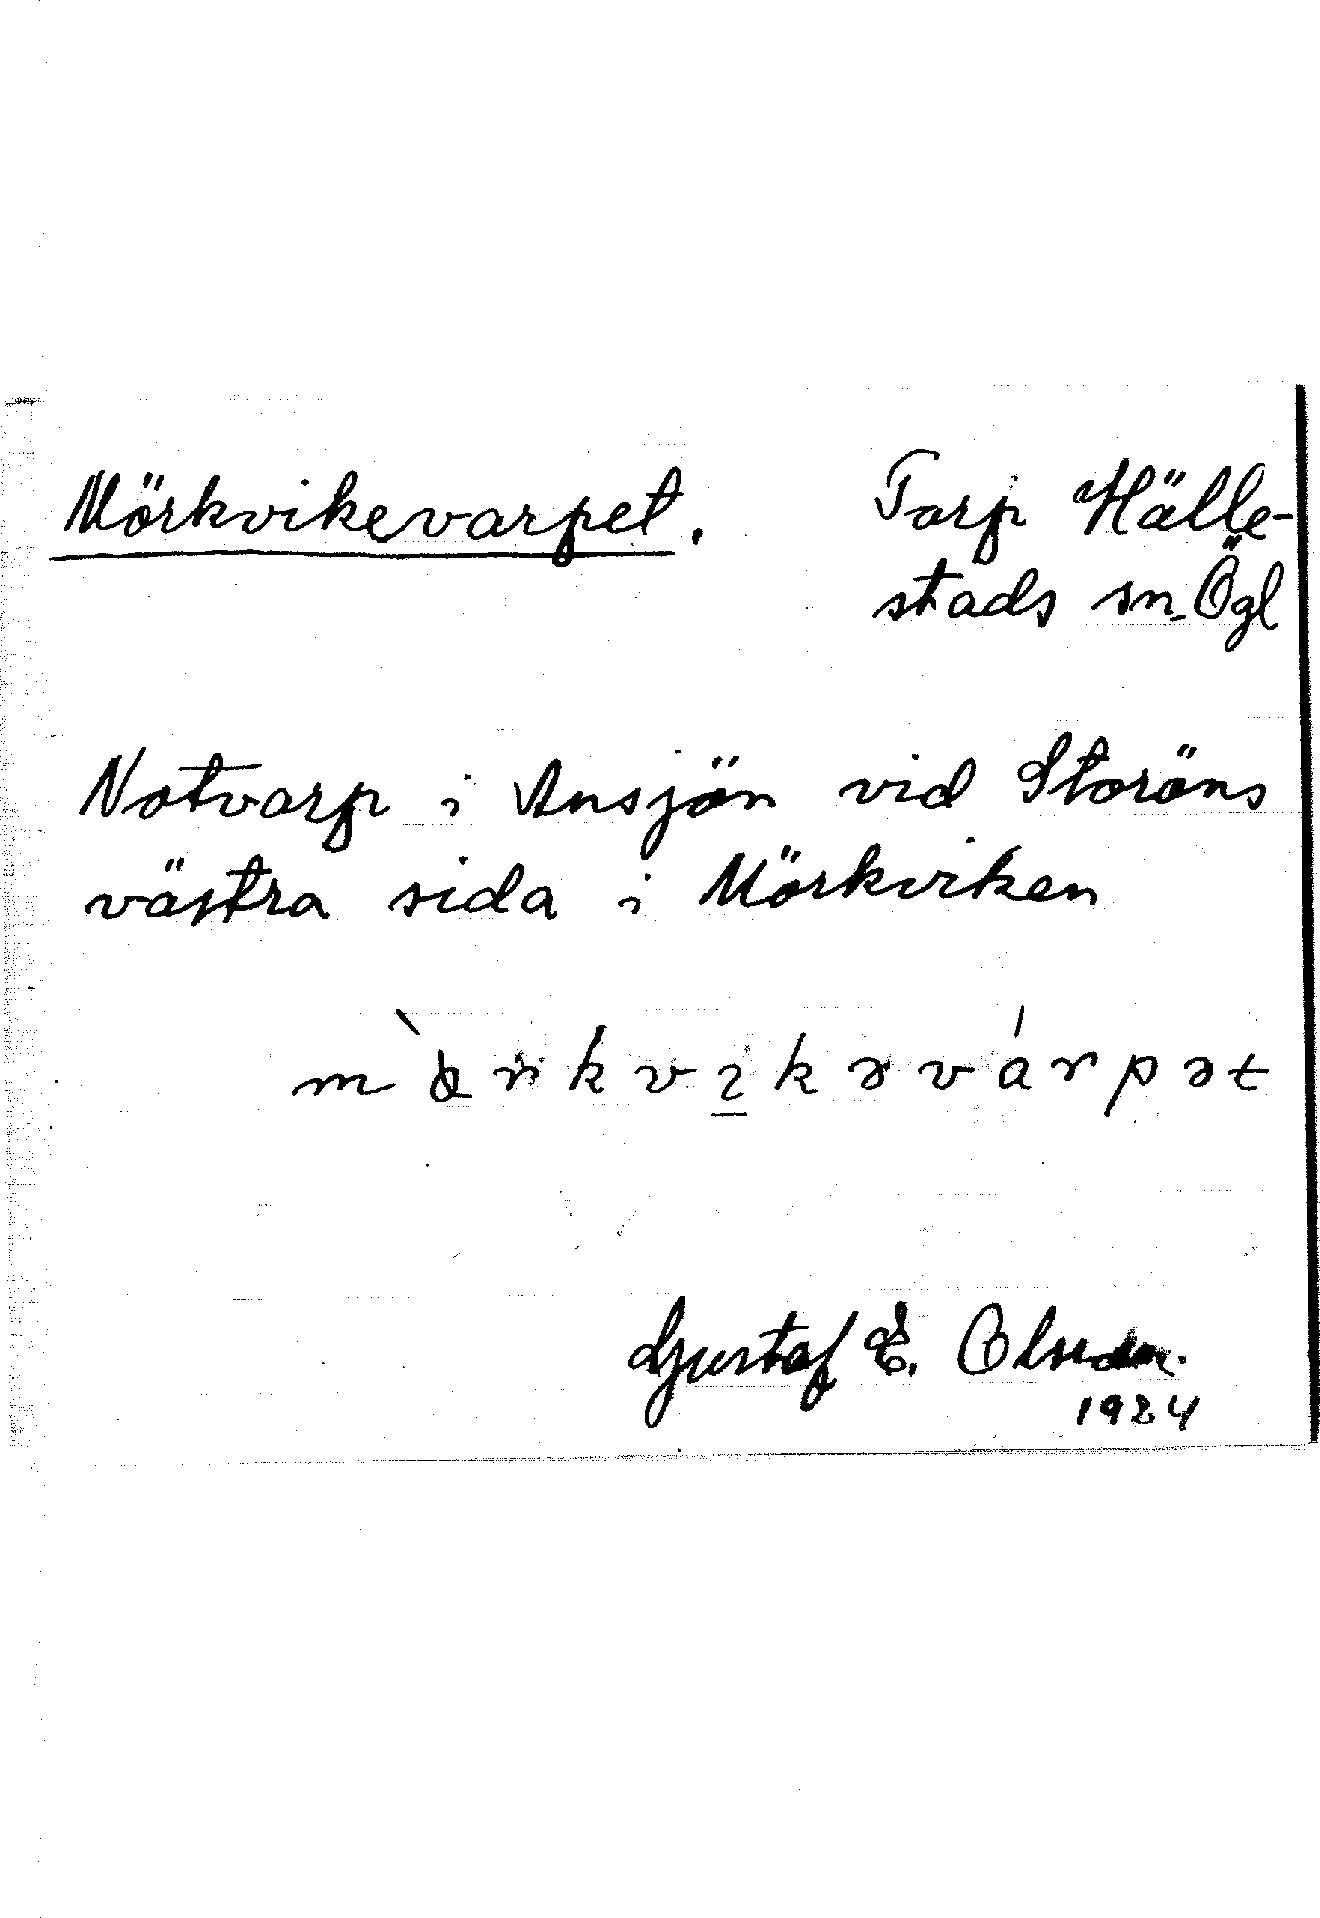 Mörkvikevarpet. Torp Hälle-
stads sn. Ögl
Notvarp i Ansjön vid Storöns
västra sida i Mörkviken
Gustaf E. Olsson.
1924